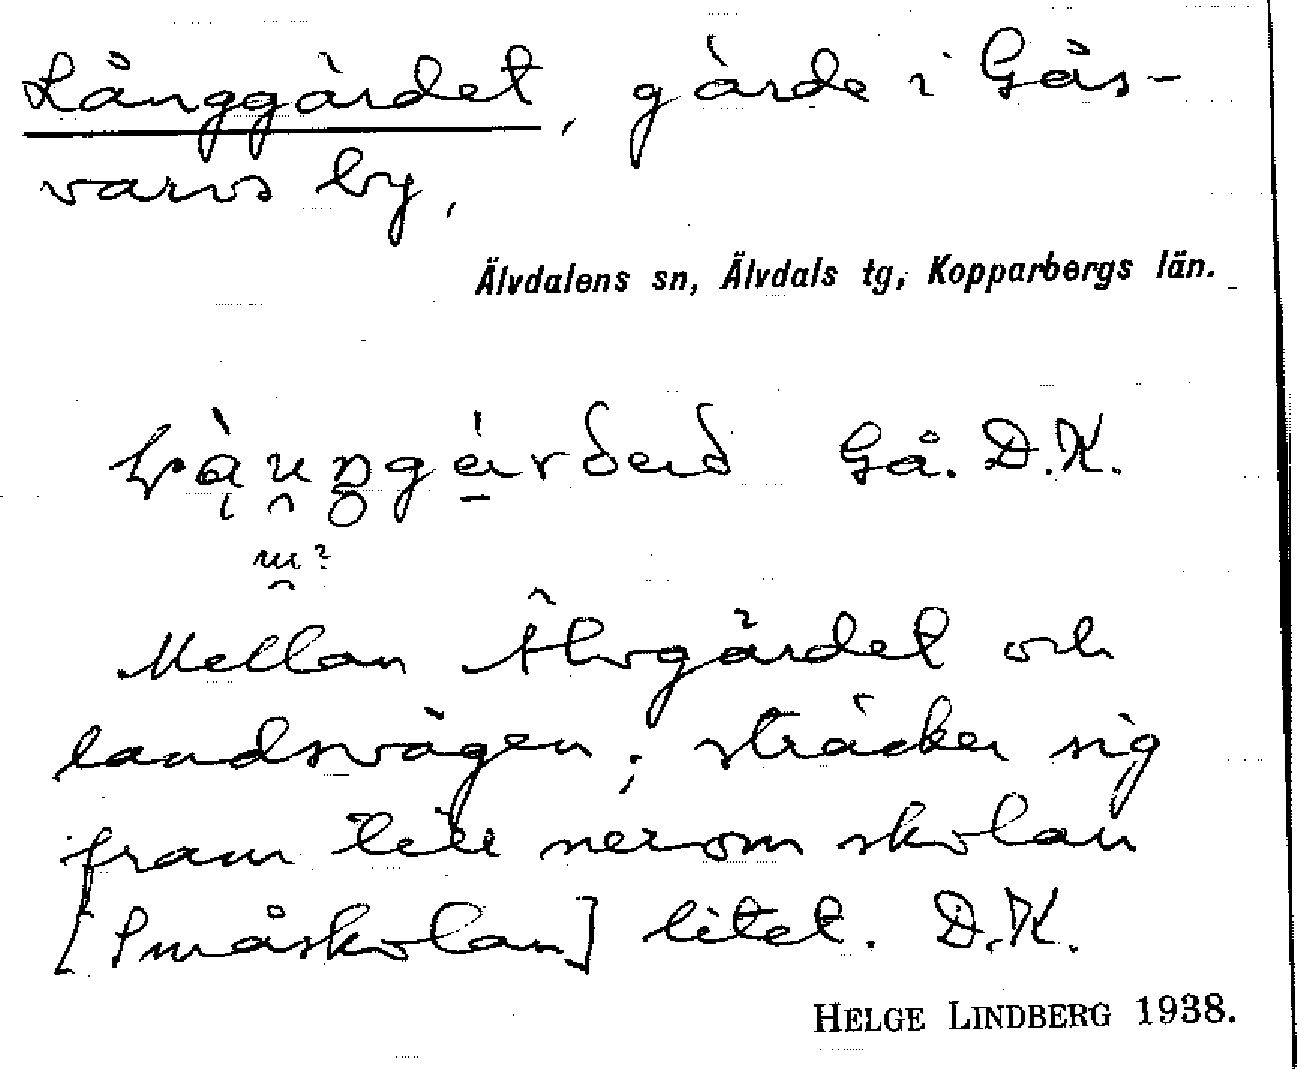 Långgärdet, gärde i Gås-
varvs by,
Älvdalens sn, Älvdals tg, Kopparbergs län.
Gå. D.K.
Mellan Älvgärdet och
landsvägen; sträcker sig
fram till nerom skolan
[Småskolan] litet. D.K.
HELGE LINDBERG 1938.